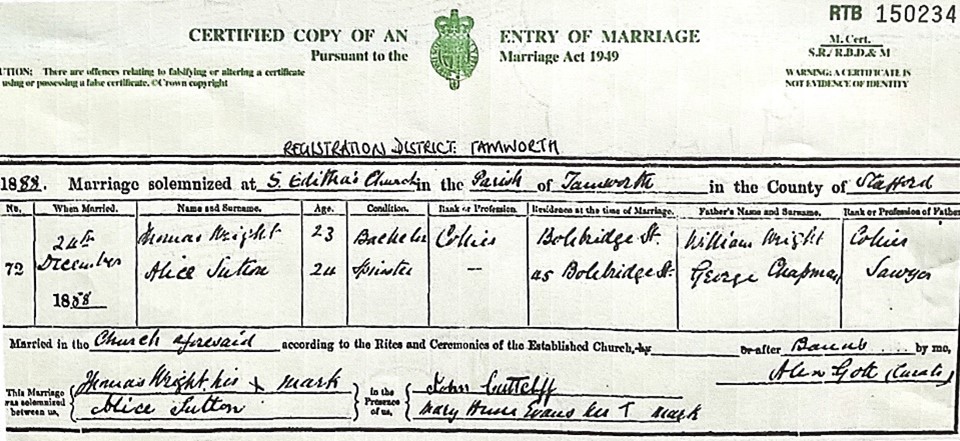 RTB 150234
CERTIFIED COPY OF AN ENTRY OF MARRIAGE
M. Cert.
Pursuant to the Marriage Act 1949
S.R./R.B.D.& M
UTION: There are offences relating to falsifying or altering a certificate
using or possessing a false certificate. ©Crown copyright
WARNING: A CERTIFICATE IS
NOT EVIDENCE OF IDENTITY
REGISTRATION DISTRICT TAMWORTH
1888. Marriage solemnized at S. Editha's Church in the Parish of Tamworth in the County of Stafford
No. When Married. Name and Surname. Age. Condition. Rank or Profession. Residence at the time of Marriage. Father's Name and Surname. Rank or Profession of Father
72 24th December 1888
Thomas Wright 23 Bachelor Collier Bolebridge St. William Wright Collier
Alice Sutton 24 Spinster — 25 Bolebridge St. George Chapman Sawyer
Married in the Church aforesaid according to the Rites and Ceremonies of the Established Church, by or after Banns by me,
Gott (Curate)
This Marriage was solemnized between us, Thomas Wright his x mark
Alice Sutton
in the Presence of us, John
Mary Evans her T mark